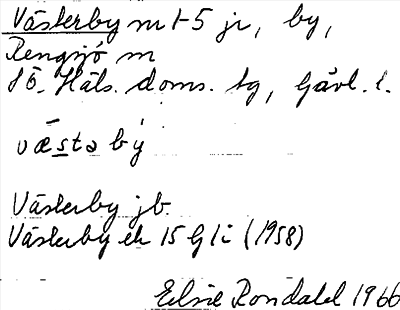 Västerby nr 1-5 jr, by,
Rengsjö sn
SÖ. Häls. doms. tg, Gävl. l.
væ̀sta bý
Västerby jb.
Västerby ek 15 G li (1958)
Elsie Rondahl 1966